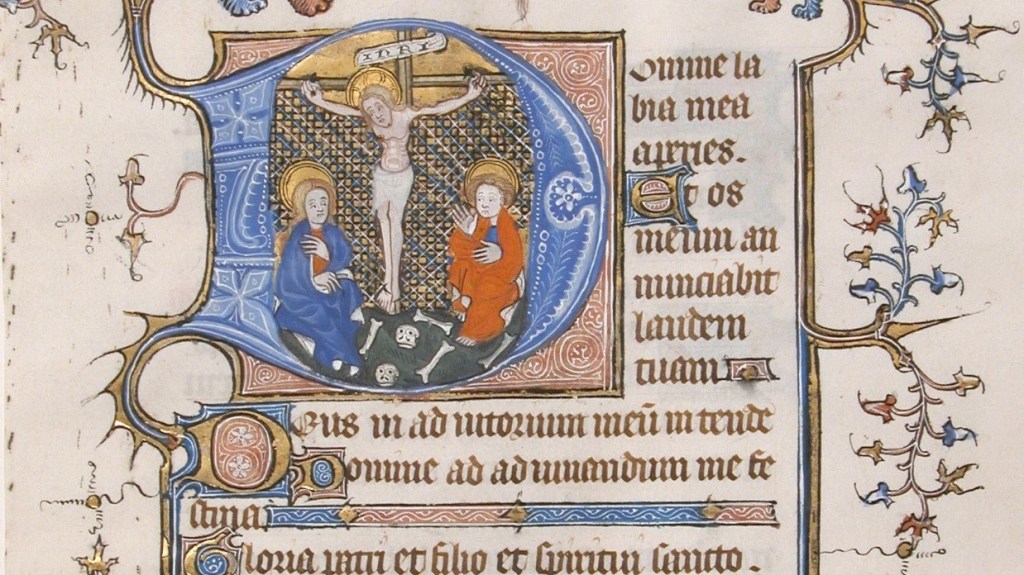 INRI
Domine la
bia mea
aperies.
Et os
meum an
nunciabit
laudem
tuam
Deus in adiutorium meū intende
Domine ad adiuuandum me fe
stina
Gloria patri et filio et spiritui sancto.